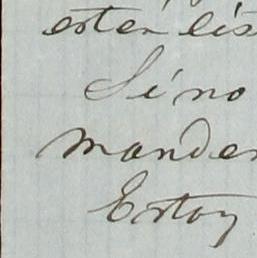 esten lis
Sí no
manden
Estoy